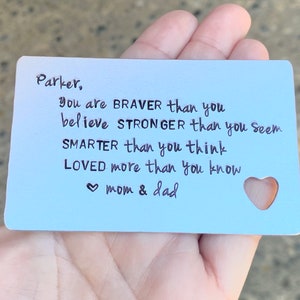 Parker,
You are BRAVER than you
believe STRONGER than you seem
SMARTER than you think
LOVED more than you know
♥ mom & dad